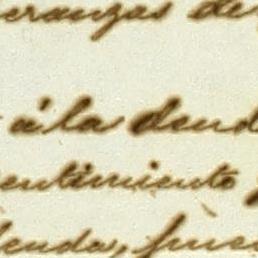 eranzas de
á la deud
entimiento
deuda, pues